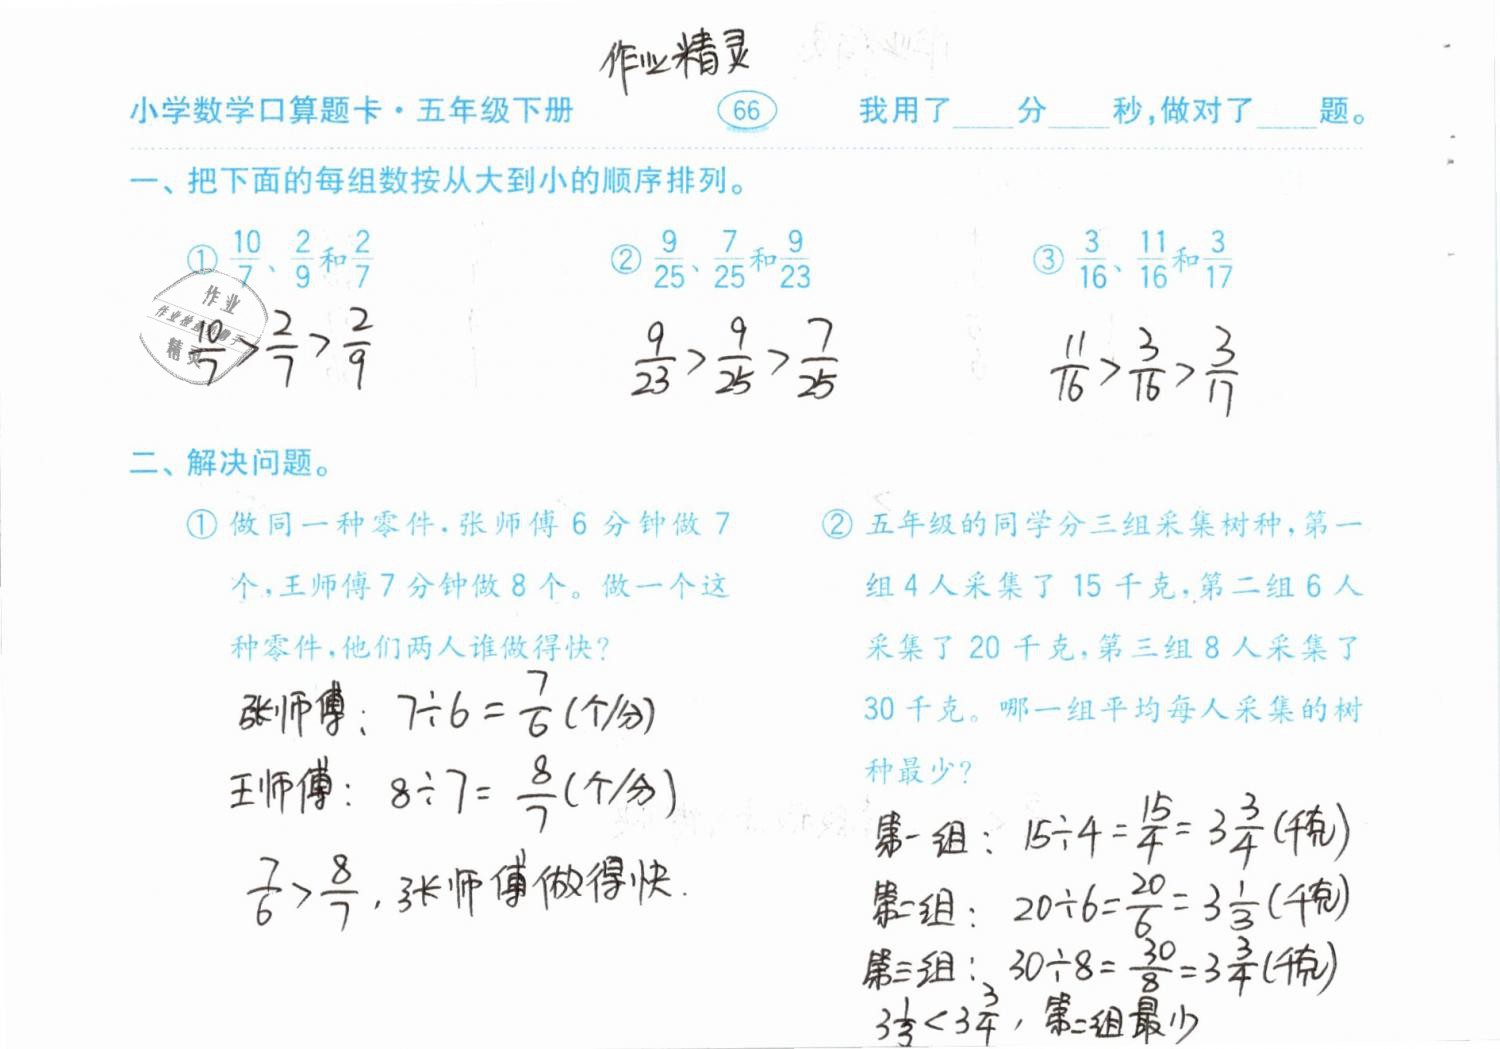 作业精灵
小学数学口算题卡·五年级下册 66 我用了____分____秒,做对了____题。
一、把下面的每组数按从大到小的顺序排列。
① 10/7、2/9和2/7 ② 9/25、7/25和9/23 ③ 3/16、11/16和3/17
作业
精灵
10/7>2/7>2/9 9/23>9/25>7/25 11/16>3/16>3/17
二、解决问题。
① 做同一种零件,张师傅6分钟做7
个,王师傅7分钟做8个。做一个这
种零件,他们两人谁做得快?
张师傅: 7÷6=7/6(个/分)
王师傅: 8÷7=8/7(个/分)
7/6>8/7,张师傅做得快.
② 五年级的同学分三组采集树种,第一
组4人采集了15千克,第二组6人
采集了20千克,第三组8人采集了
30千克。哪一组平均每人采集的树
种最少?
第一组: 15÷4=15/4=3 3/4(千克)
第二组: 20÷6=20/6=3 1/3(千克)
第三组: 30÷8=30/8=3 3/4(千克)
3 1/3<3 3/4,第二组最少